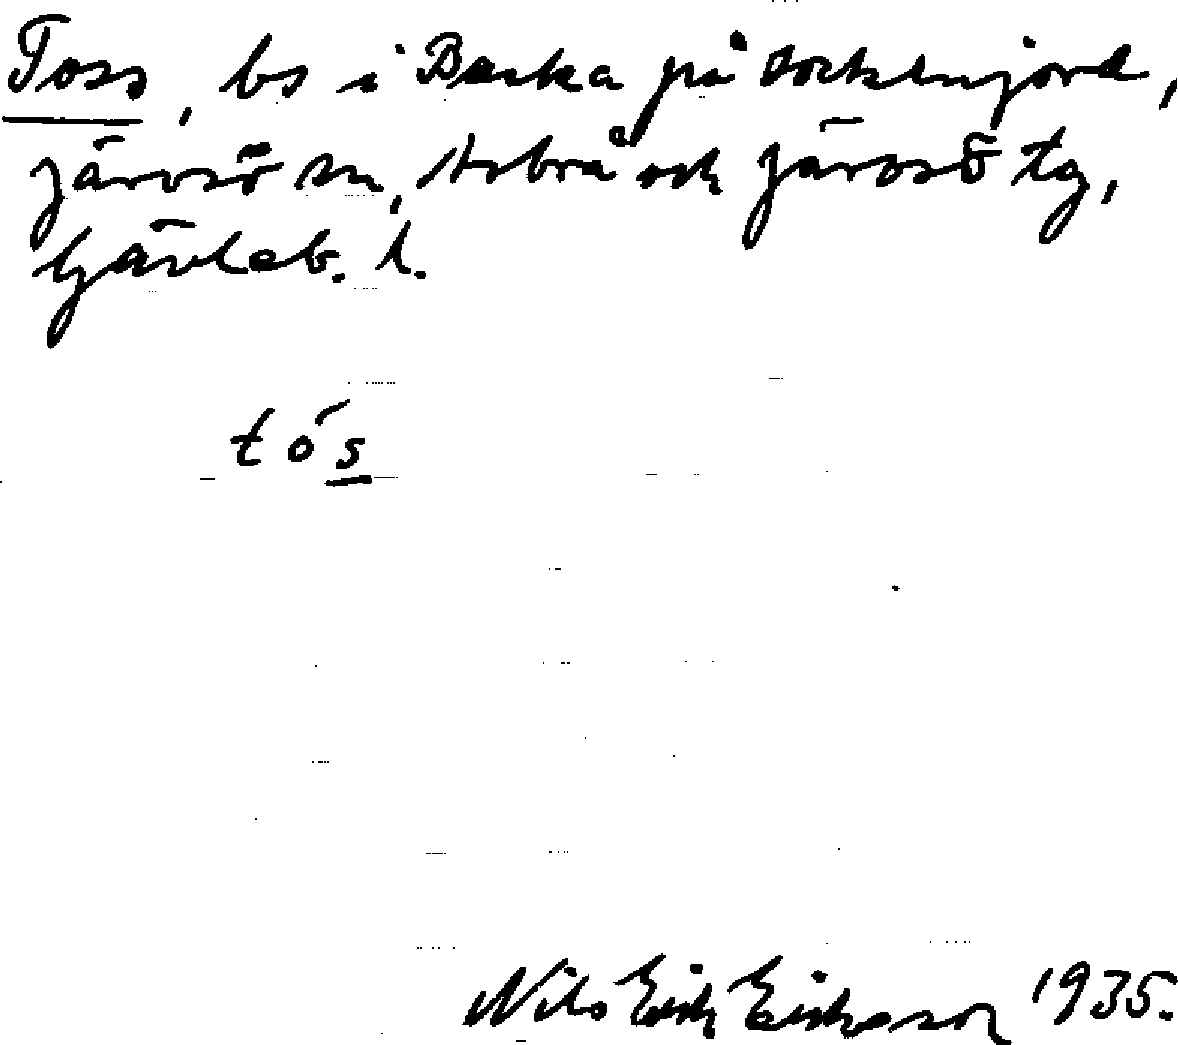 Toss, bs i Backa på sockenjord,
Järvsö sn, Arbrå och Järvsö tg,
Gävleb. l.
tós
Nils Erik Eriksson 1935.